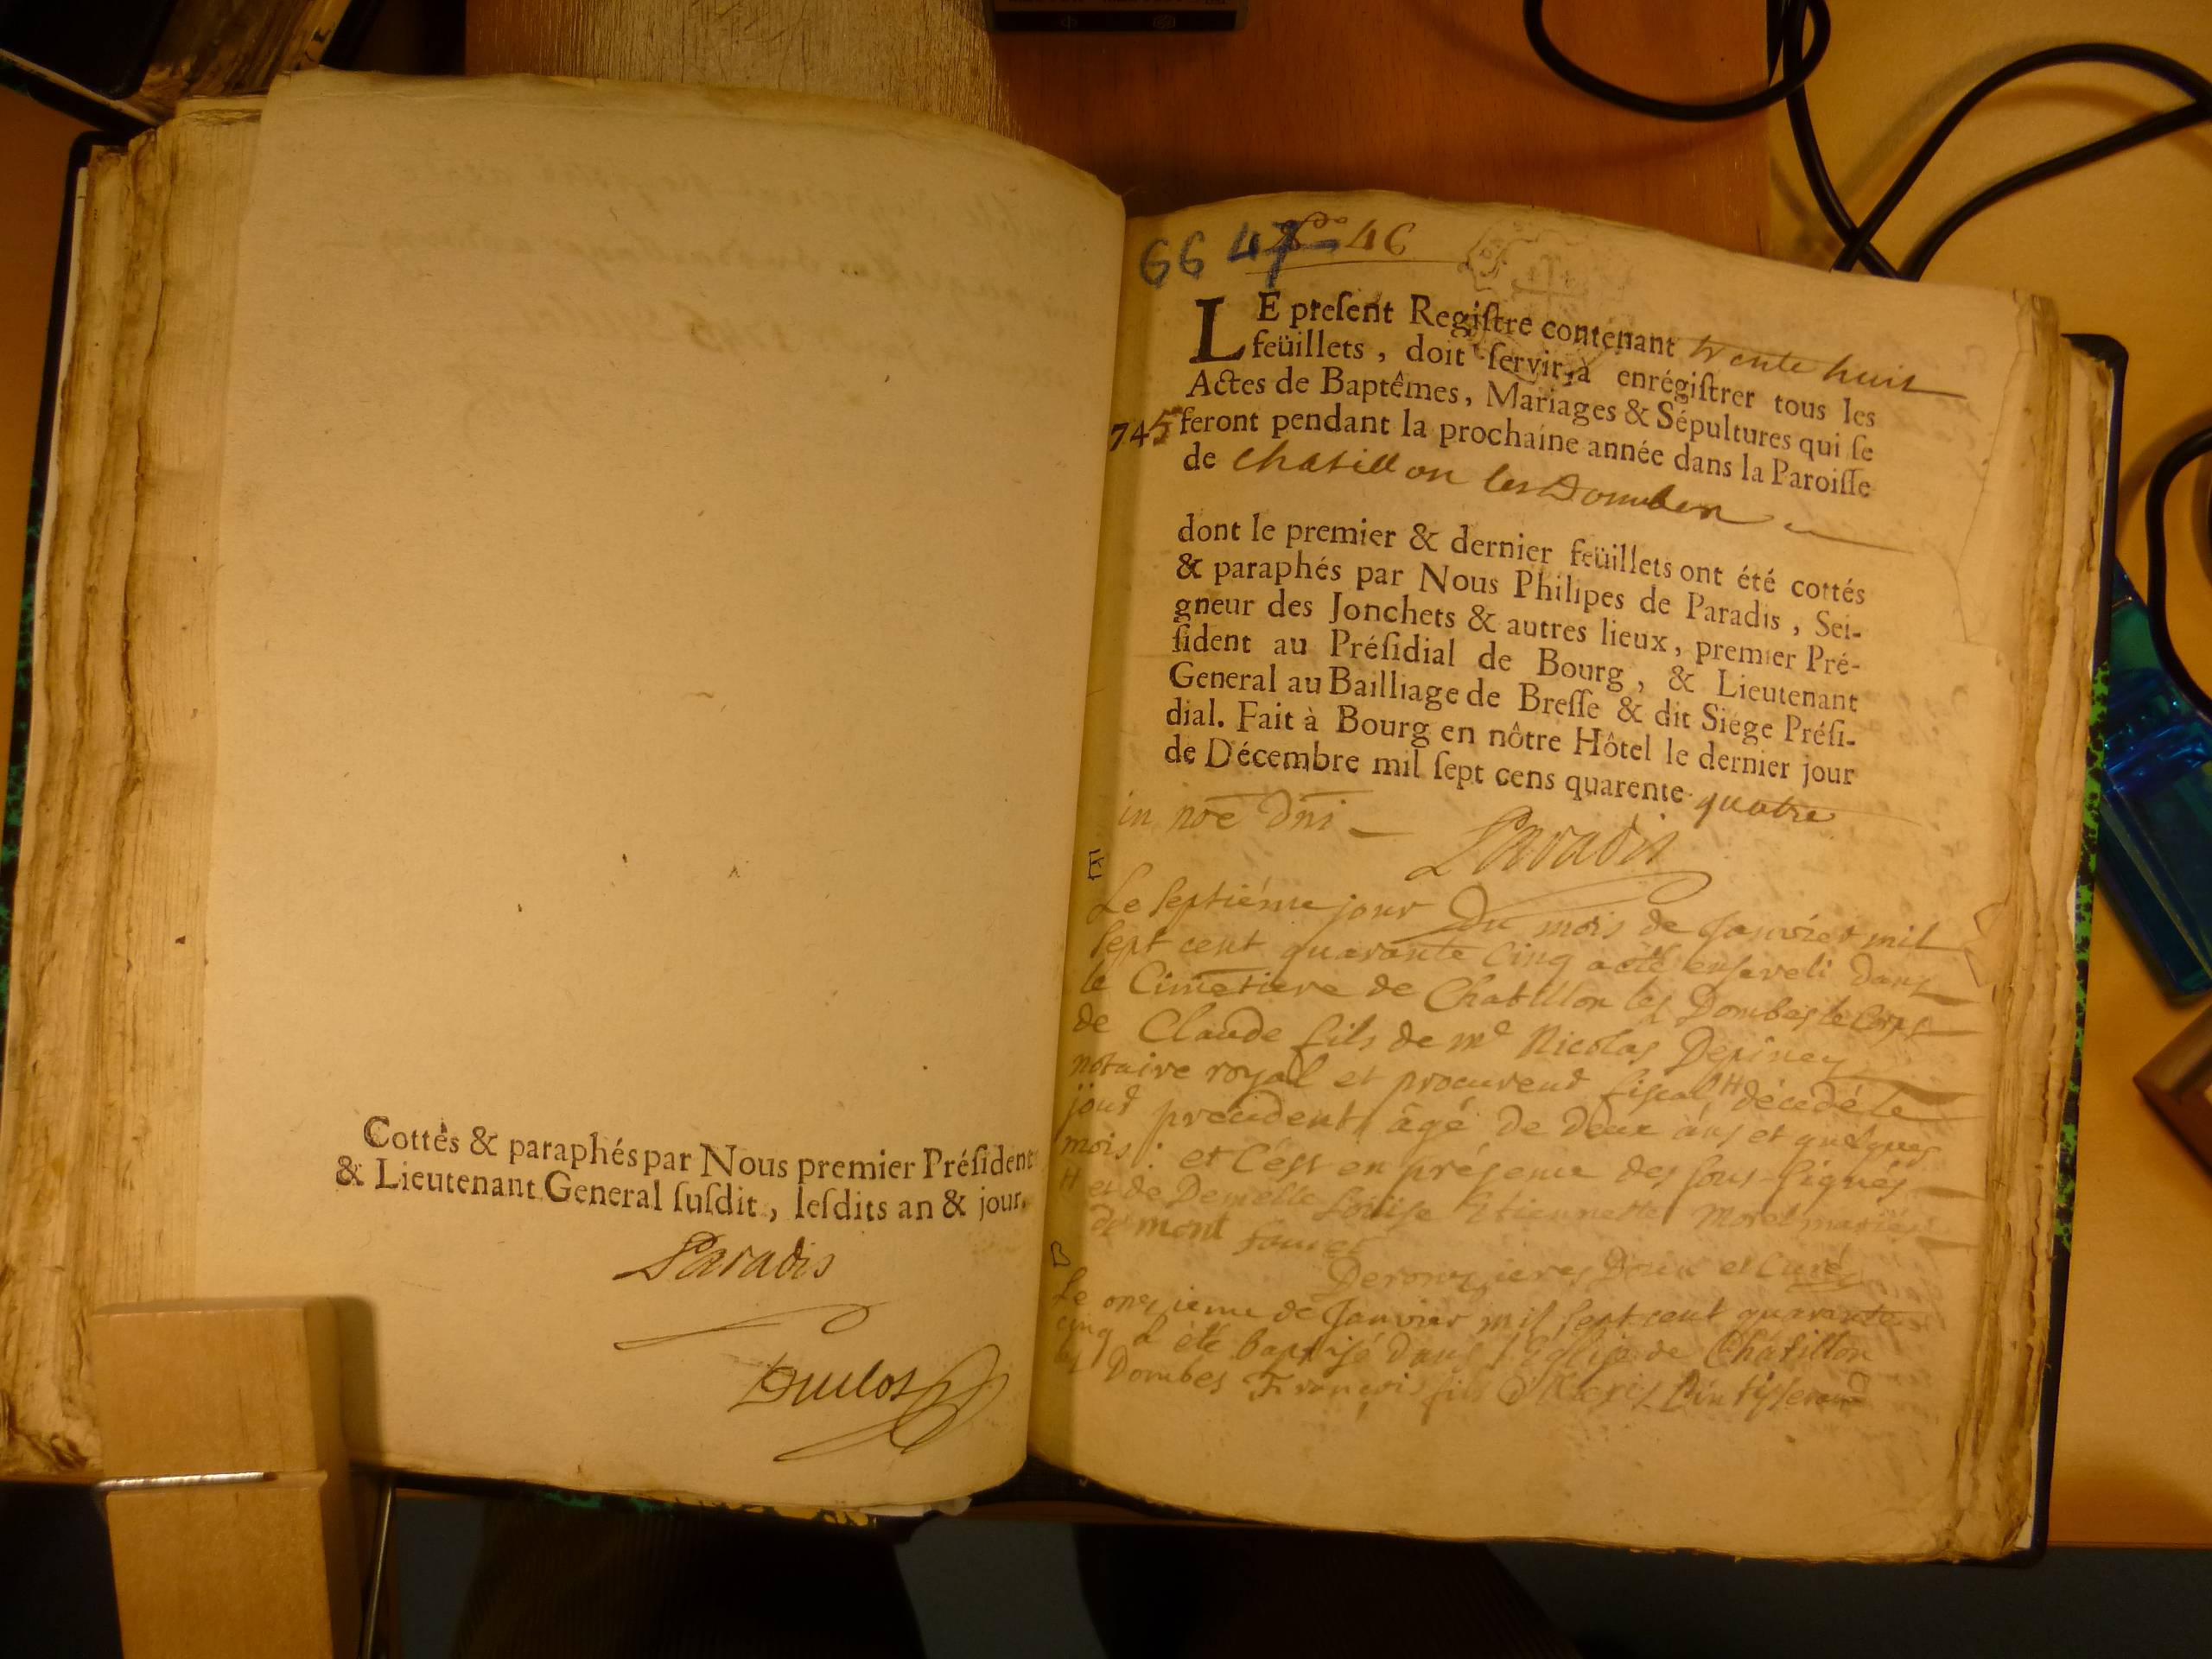 Cottés & paraphés par Nous premier Préſident
& Lieutenant General ſuſdit, leſdits an & jour.
Paradis
Duclos
66 47 46
LE preſent Regiſtre contenant trente huit
feüillets, doit ſervir à enrégiſtrer tous les
Actes de Baptêmes, Mariages & Sépultures qui ſe
745 feront pendant la prochaine année dans la Paroiſſe
de Chatillon les Dombes
dont le premier & dernier feüillets ont été cottés
& paraphés par Nous Philipes de Paradis, Sei-
gneur des Jonchets & autres lieux, premier Pré-
ſident au Préſidial de Bourg, & Lieutenant
General au Bailliage de Breſſe & dit Siége Préſi-
dial. Fait à Bourg en nôtre Hôtel le dernier jour
de Décembre mil ſept cens quarente quatre
in noe Dni
Paradis
E
Le septiéme jour Du mois de Janvier mil
sept cent quarante cinq a été enseveli dans
le Cimetiere de Chatillon les Dombes le Corps
de Claude fils de me Nicolas Depiney
notaire royal et procureur fiscal H décédé le
jour précédent, âgé de deux ans et quelques
mois: et c'est en présence des sous-signés
H et de Demelle Louise Etiennette Morel mariés
de mont
B
et Curé
Le onzieme de Janvier mil sept cent quarante
cinq a été baptisé dans l'Eglise de Châtillon
les Dombes François fils